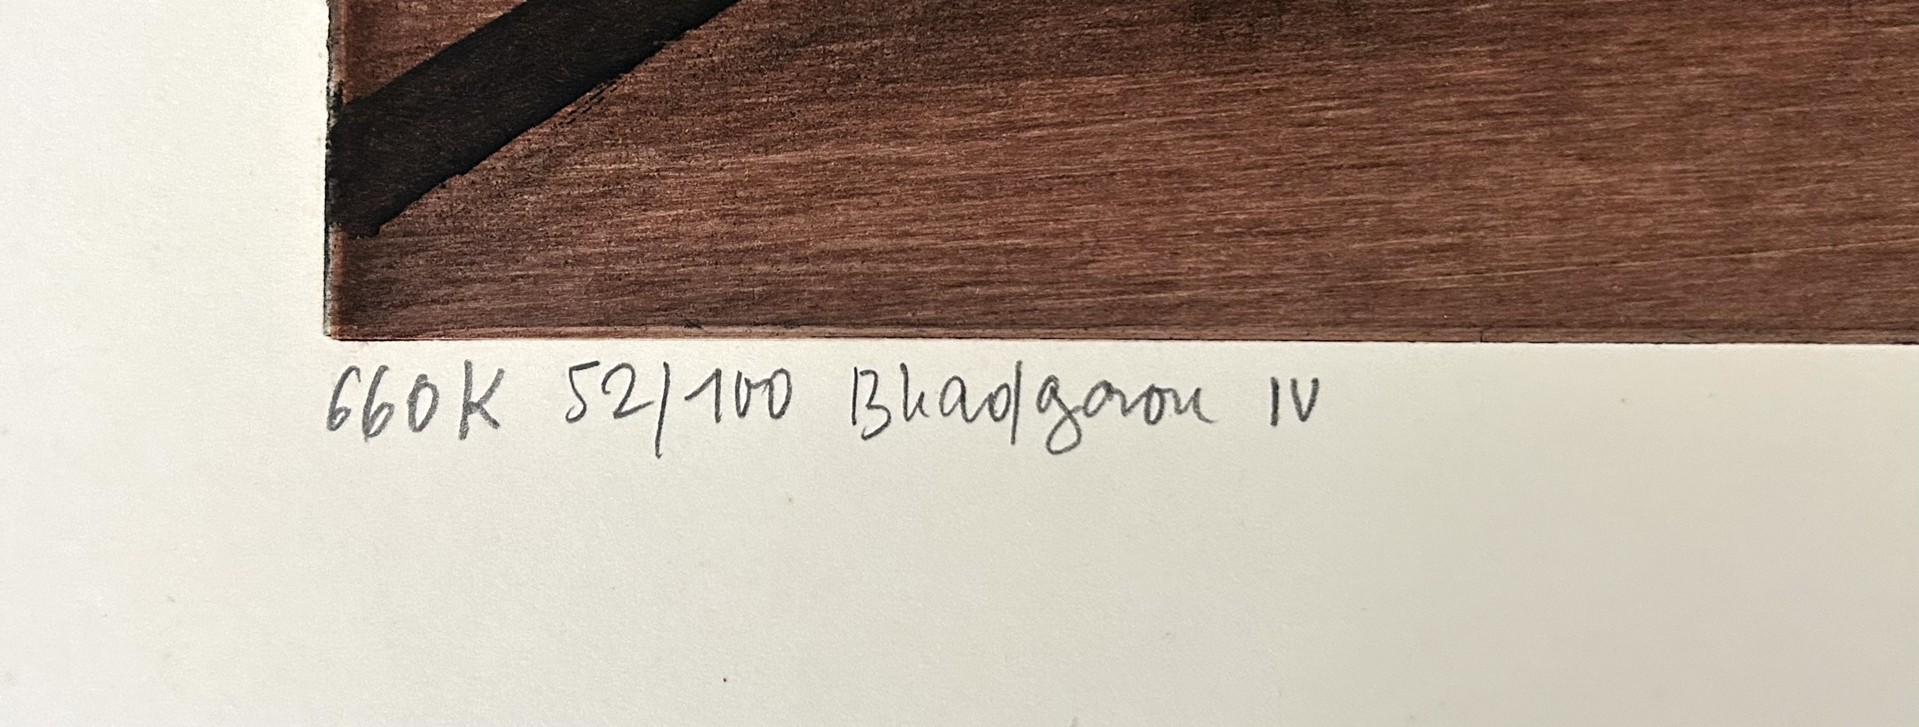 660K 52/100 Bhadgaon IV